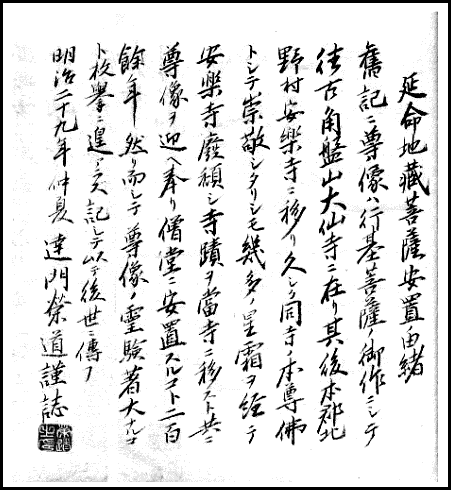 延命地蔵菩薩安置由緒
舊記ニ尊像ハ行基菩薩ノ御作ニシテ
往古角盤山大仙寺ニ在リ其後本郡北
野村安楽寺ニ移リ久シク同寺ノ本尊佛
トシテ崇敬シタリシモ幾多ノ星霜ヲ経テ
安楽寺廃頽シ寺蹟ヲ當寺ニ移スト共ニ
尊像ヲ迎ヘ奉リ僧堂ニ安置スルコト二百
餘年然リ而シテ尊像ノ霊験著大ナルコ
ト枚擧ニ遑アラス記シテ以テ後世ニ傳フ
明治二十九年仲夏 達門榮道謹誌